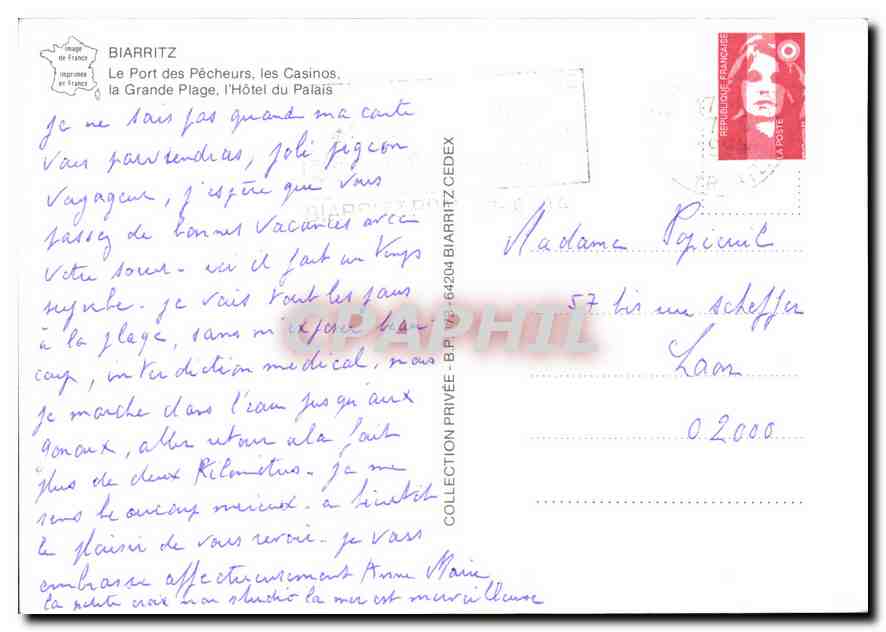 image
de France
imprimée
en France
BIARRITZ
Le Port des Pêcheurs, les Casinos,
la Grande Plage, l'Hôtel du Palais
je ne sais pas quand ma carte
vous parviendras, joli pigeon
voyageur, j'espère que vous
passez de bonnes vacances avec
votre soeur - ici il fait un temps
superbe - je vais tout les jours
à la plage, sans m'exposer beau-
coup, interdiction medical, mais
je marche dans l'eau jusqu'aux
genoux, aller retour cela fait
plus de deux Kilomètres - je me
sens beaucoup mieux - a bientôt
le plaisir de vous revoir - je vous
embrasse affectueusement Anne Marie
la petite croix mon studio la mer est merveilleuse
COLLECTION PRIVÉE - B.P. 78 - 64204 BIARRITZ CEDEX
RÉPUBLIQUE FRANÇAISE
LA POSTE
Madame
57 bis rue Scheffer
Laon
02000
CPAPHIL